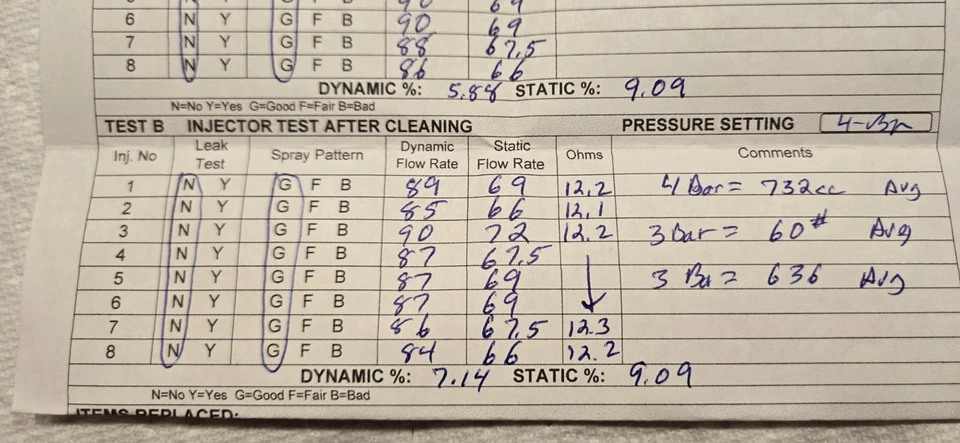 6 N Y G F B 90 69
7 N Y G F B 88 67.5
8 N Y G F B 86 66
DYNAMIC %: 5.88 STATIC %: 9.09
N=No Y=Yes G=Good F=Fair B=Bad
TEST B INJECTOR TEST AFTER CLEANING PRESSURE SETTING 4-Bar
Inj. No Leak Test Spray Pattern Dynamic Flow Rate Static Flow Rate Ohms Comments
1 N Y G F B 89 69 12.2 4 Bar = 732cc Avg
2 N Y G F B 85 66 12.1
3 N Y G F B 90 72 12.2 3 Bar = 60# Avg
4 N Y G F B 87 67.5
5 N Y G F B 87 69 3 Ba = 636 Avg
6 N Y G F B 87 69
7 N Y G F B 86 67.5 12.3
8 N Y G F B 84 66 12.2
DYNAMIC %: 7.14 STATIC %: 9.09
N=No Y=Yes G=Good F=Fair B=Bad
ITEMS REPLACED: